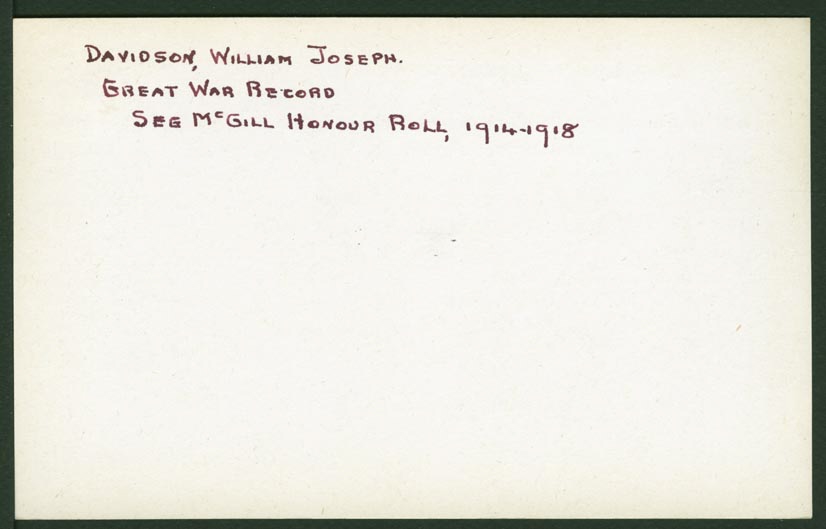 Davidson, William Joseph.
Great War Record
See McGill Honour Roll, 1914-1918